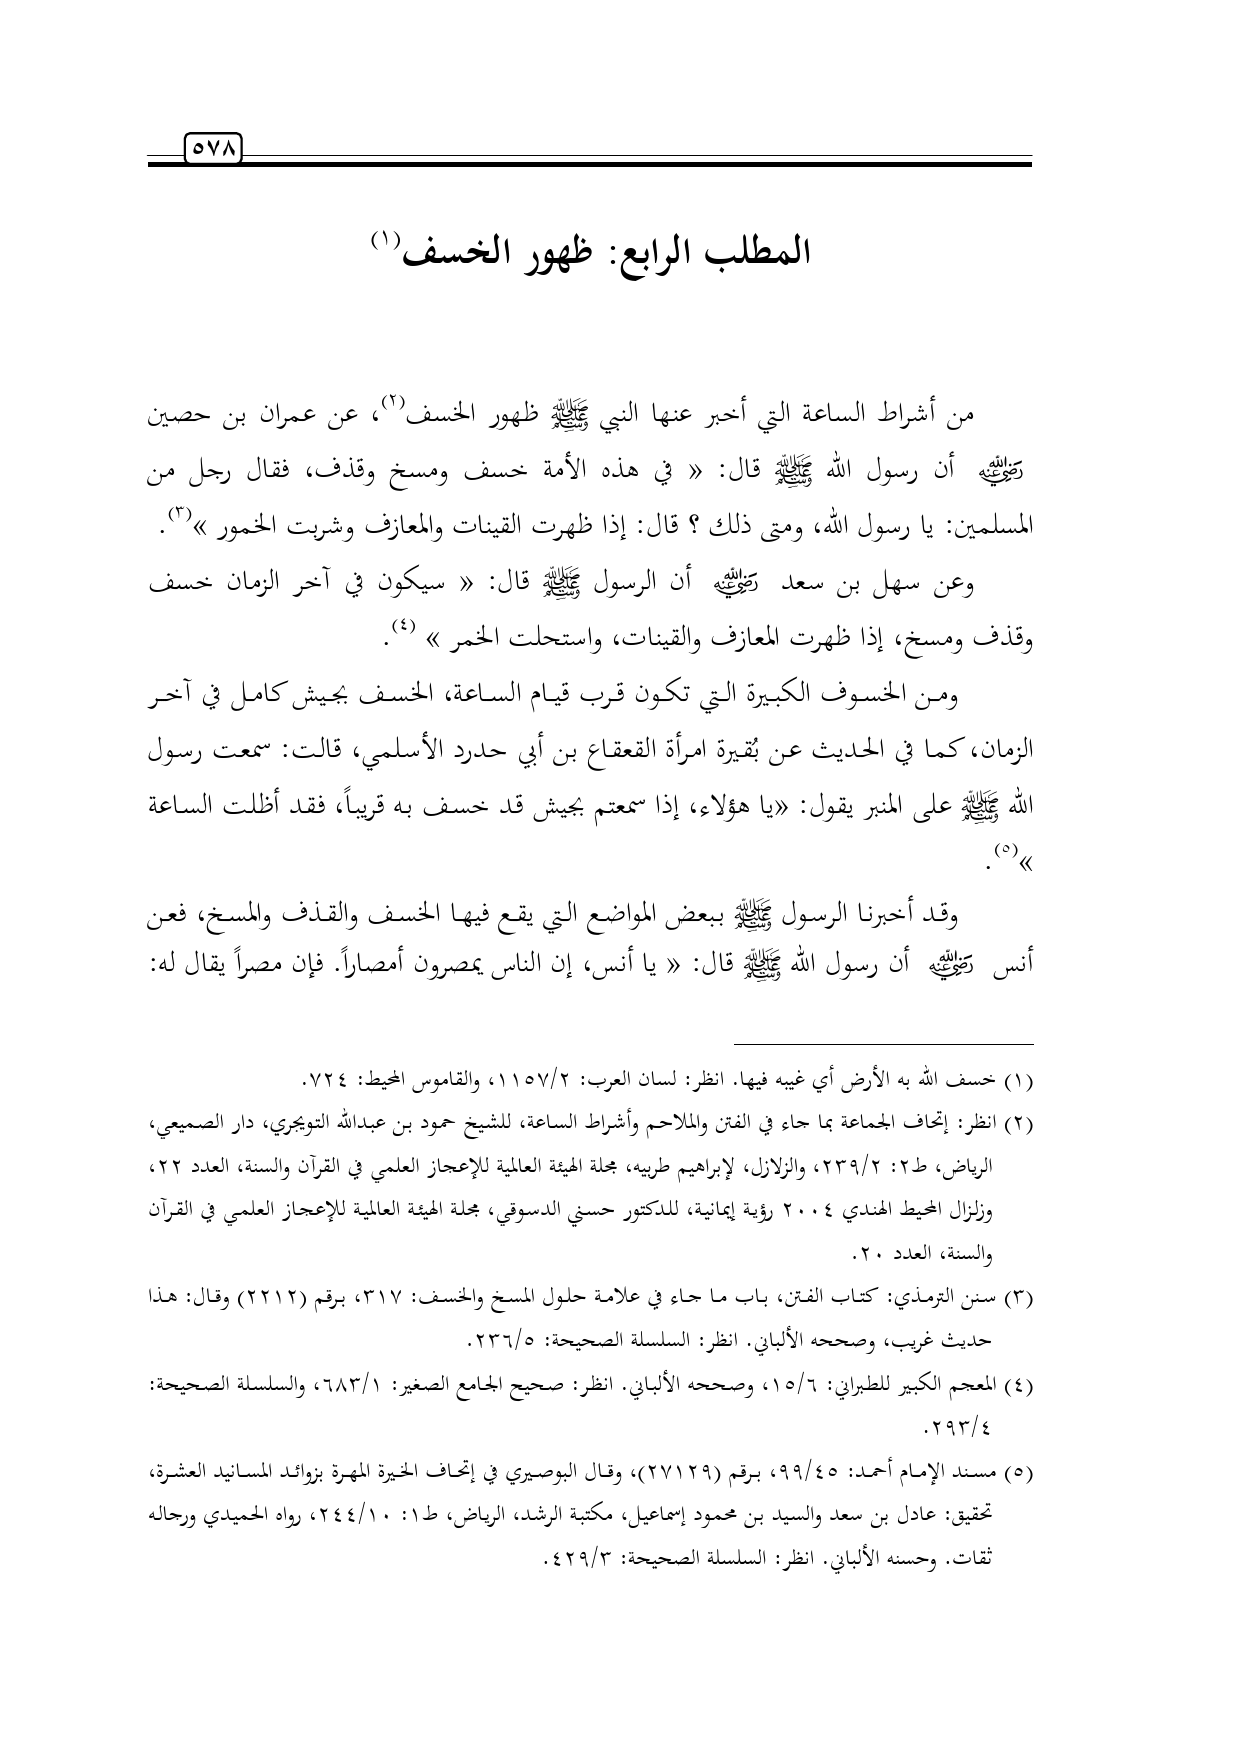 ٥٧٨
المطلب الرابع: ظهور الخسف(١)
من أشراط الساعة التي أخبر عنها النبي ﷺ ظهور الخسف(٢)، عن عمران بن حصين
رضي الله عنه أن رسول الله ﷺ قال: « في هذه الأمة خسف ومسخ وقذف، فقال رجل من
المسلمين: يا رسول الله، ومتى ذلك ؟ قال: إذا ظهرت القينات والمعازف وشربت الخمور »(٣).
وعن سهل بن سعد رضي الله عنه أن الرسول ﷺ قال: « سيكون في آخر الزمان خسف
وقذف ومسخ، إذا ظهرت المعازف والقينات، واستحلت الخمر » (٤).
ومن الخسوف الكبيرة التي تكون قرب قيام الساعة، الخسف بجيش كامل في آخر
الزمان، كما في الحديث عن بُقيرة امرأة القعقاع بن أبي حدرد الأسلمي، قالت: سمعت رسول
الله ﷺ على المنبر يقول: «يا هؤلاء، إذا سمعتم بجيش قد خسف به قريباً، فقد أظلت الساعة
»(٥).
وقد أخبرنا الرسول ﷺ ببعض المواضع التي يقع فيها الخسف والقذف والمسخ، فعن
أنس رضي الله عنه أن رسول الله ﷺ قال: « يا أنس، إن الناس يمصرون أمصاراً. فإن مصراً يقال له:
(١) خسف الله به الأرض أي غيبه فيها. انظر: لسان العرب: ١١٥٧/٢، والقاموس المحيط: ٧٢٤.
(٢) انظر: إتحاف الجماعة بما جاء في الفتن والملاحم وأشراط الساعة، للشيخ حمود بن عبدالله التويجري، دار الصميعي،
الرياض، ط٢: ٢٣٩/٢، والزلازل، لإبراهيم طربيه، مجلة الهيئة العالمية للإعجاز العلمي في القرآن والسنة، العدد ٢٢،
وزلزال المحيط الهندي ٢٠٠٤ رؤية إيمانية، للدكتور حسني الدسوقي، مجلة الهيئة العالمية للإعجاز العلمي في القرآن
والسنة، العدد ٢٠.
(٣) سنن الترمذي: كتاب الفتن، باب ما جاء في علامة حلول المسخ والخسف: ٣١٧، برقم (٢٢١٢) وقال: هذا
حديث غريب، وصححه الألباني. انظر: السلسلة الصحيحة: ٢٣٦/٥.
(٤) المعجم الكبير للطبراني: ١٥/٦، وصححه الألباني. انظر: صحيح الجامع الصغير: ٦٨٣/١، والسلسلة الصحيحة:
٢٩٣/٤.
(٥) مسند الإمام أحمد: ٩٩/٤٥، برقم (٢٧١٢٩)، وقال البوصيري في إتحاف الخيرة المهرة بزوائد المسانيد العشرة،
تحقيق: عادل بن سعد والسيد بن محمود إسماعيل، مكتبة الرشد، الرياض، ط١: ٢٤٤/١٠، رواه الحميدي ورجاله
ثقات. وحسنه الألباني. انظر: السلسلة الصحيحة: ٤٢٩/٣.